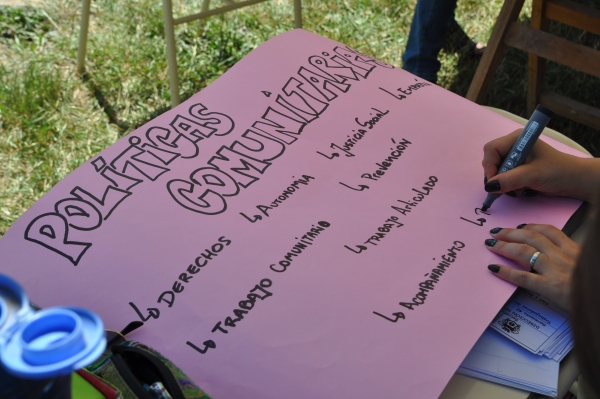 POLÍTICAS
COMUNITARIAS
↳ DERECHOS
↳ AUTONOMIA
↳ JUSTICIA SOCIAL
↳ TRABAJO COMUNITARIO
↳ PREVENCIÓN
↳ TRABAJO ARTICULADO
↳ ACOMPAÑAMIENTO
↳